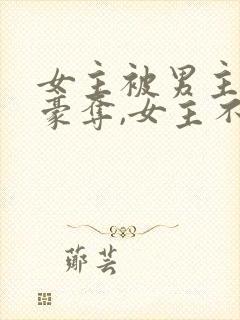 女主被男主
豪夺,女主不
郑芸